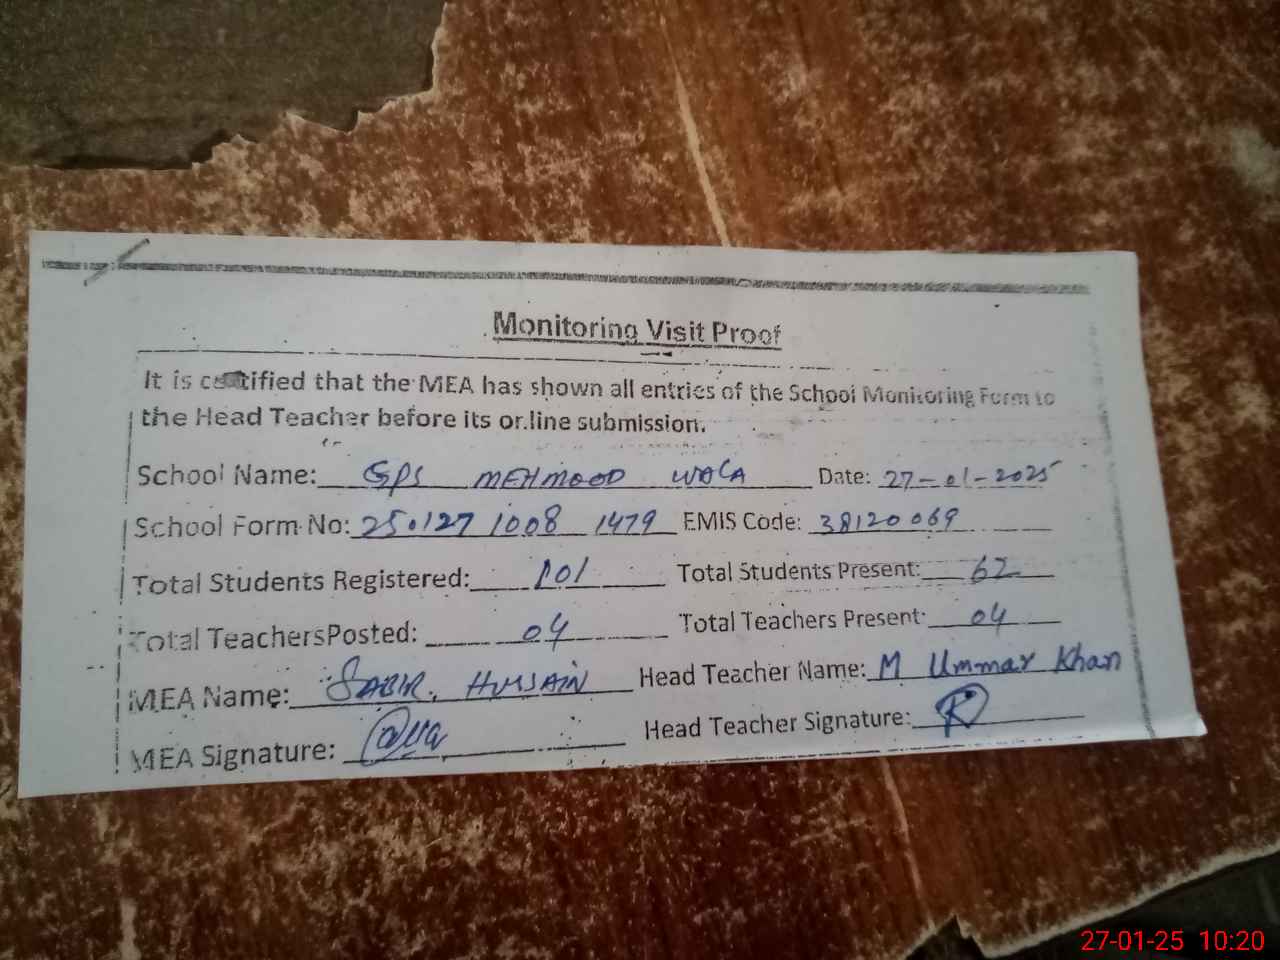 Monitoring Visit Proof
It is certified that the MEA has shown all entries of the School Monitoring Form to
the Head Teacher before its or.line submission.
School Name: GPS MEHMOOD WALA Date: 27-01-2025
School Form No: 250127 1008 1479 EMIS Code: 38120069
Total Students Registered: 101 Total Students Present: 62
Total TeachersPosted: 04 Total Teachers Present: 04
MEA Name: SABIR. HUSSAIN Head Teacher Name: M Ummar Khan
MEA Signature: Head Teacher Signature:
27-01-25 10:20